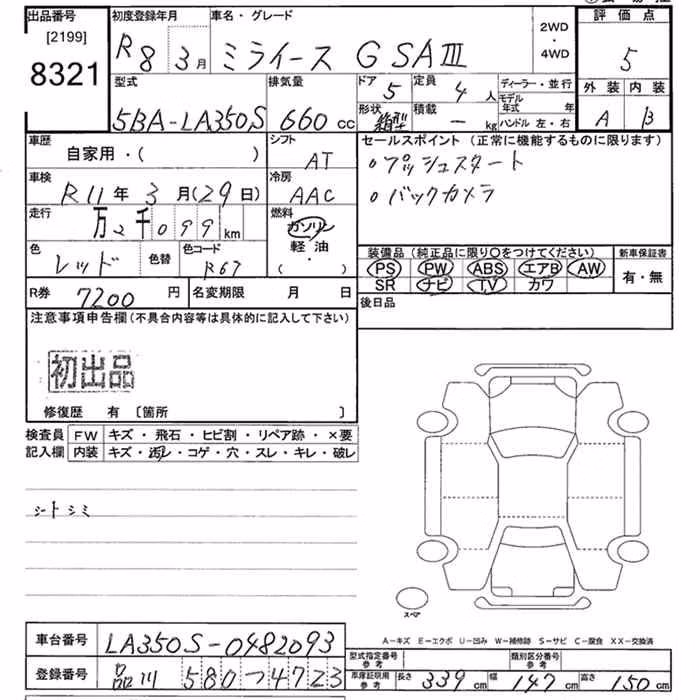 出品番号
[2199]
8321
初度登録年月
R8 3月
車名・グレード
ミライース G SAⅢ
2WD
・
4WD
評価点
5
型式
5BA-LA350S
排気量
660 cc
ドア
5
定員
4人
形状
箱型
積載
- kg
ディーラー・並行
モデル年式 年
ハンドル 左・右
外装 内装
A B
車歴
自家用・( )
シフト
AT
車検
R11年3月(29日)
冷房
AAC
走行
万2千099km
燃料
ガソリン
軽・油
・
( )
色
レッド
色替
色コード
R67
セールスポイント (正常に機能するものに限ります)
・プッシュスタート
・バックカメラ
装備品 (純正品に限り〇をつけてください)
PS PW ABS エアB AW
SR ナビ TV カワ
新車保証書
有・無
R券 7200円
名変期限 月 日
後日品
注意事項申告欄(不具合内容等は具体的に記入して下さい)
初出品
修復歴 有 〔箇所 〕
検査員 FW キズ・飛石・ヒビ割・リペア跡・×要
記入欄 内装 キズ・汚レ・コゲ・穴・スレ・キレ・破レ
シートシミ
スペア
A-キズ E-エクボ U-凹み W-補修跡 S-サビ C-腐食 XX-交換済
車台番号 LA350S-0482093
登録番号 品川 580 つ 4723
型式指定番号 参考
類別区分番号 参考
車庫証明用 参考 長さ 339cm 幅 147cm 高さ 150cm